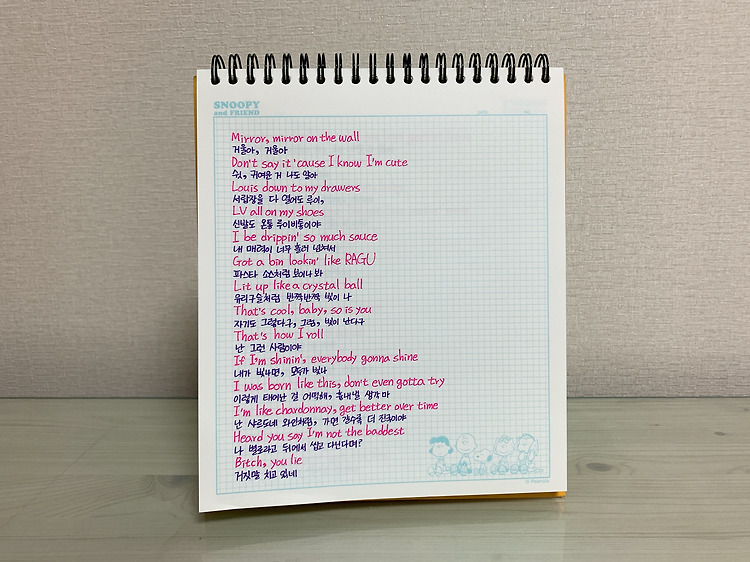 SNOOPY
and FRIEND
Mirror, mirror on the wall
거울아, 거울아
Don't say it 'cause I know I'm cute
쉿, 귀여운 거 나도 알아
Louis down to my drawers
서랍장을 다 열어도 루이,
LV all on my shoes
신발도 온통 루이비통이야
I be drippin' so much sauce
내 매력이 너무 흘러 넘쳐서
Got a bin lookin' like RAGU
파스타 소스처럼 보이나 봐
Lit up like a crystal ball
유리구슬처럼 반짝반짝 빛이 나
That's cool, baby, so is you
자기도 그렇다구, 그럼, 빛이 난다구
That's how I roll
난 그런 사람이야
If I'm shinin', everybody gonna shine
내가 빛나면, 모두가 빛나
I was born like this, don't even gotta try
이렇게 태어난 걸 어떡해, 흉내낼 생각 마
I'm like chardonnay, get better over time
난 샤르도네 와인처럼, 가면 갈수록 더 진국이야
Heard you say I'm not the baddest
나 별로라고 뒤에서 씹고 다닌다며?
Bitch, you lie
거짓말 치고 있네